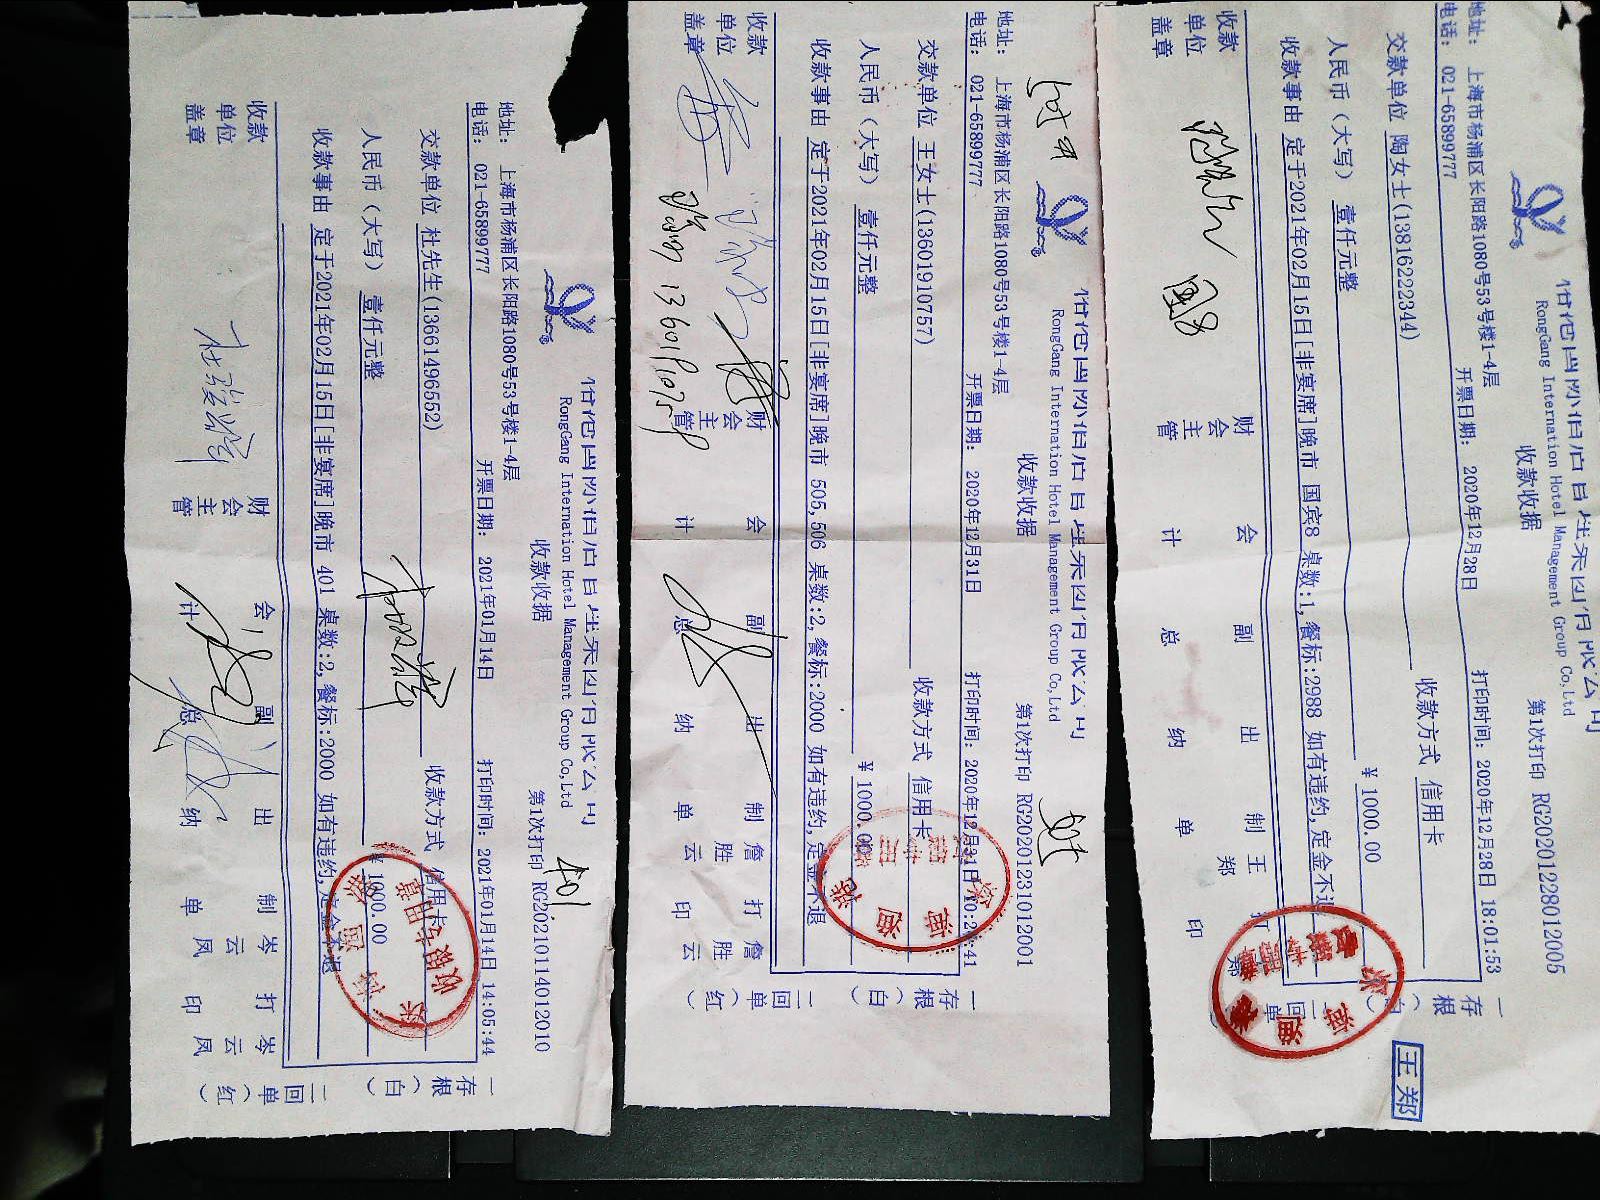 RongGang International Hotel Management Group Co,Ltd
收款收据
第1次打印 RG202101140120​10
地址: 上海市杨浦区长阳路1080号53号楼1-4层
电话: 021-65899777
开票日期: 2021年01月14日
打印时间: 2021年01月14日 14:05:44
交款单位 杜先生(13661496552)
收款方式 信用卡
人民币(大写) 壹仟元整
¥ 1000.00
收款事由 定于2021年02月15日[非宴席]晚市 401 桌数:2,餐标:2000 如有违约,定金不退
收款单位盖章
财会主管
会计
副总
出纳
制单 岑云凤
打印 岑云凤
一存根(白)
二回单(红)
收银专用章
401
RongGang International Hotel Management Group Co,Ltd
收款收据
第1次打印 RG20201231012001
地址: 上海市杨浦区长阳路1080号53号楼1-4层
电话: 021-65899777
开票日期: 2020年12月31日
打印时间: 2020年12月31日 10:21:41
交款单位 王女士(13601910757)
收款方式 信用卡
人民币(大写) 壹仟元整
¥ 1000.00
收款事由 定于2021年02月15日[非宴席]晚市 505,506 桌数:2,餐标:2000 如有违约,定金不退
收款单位盖章
财会主管
会计
副总
出纳
制单 詹胜云
打印 詹胜云
一存根(白)
二回单(红)
RongGang International Hotel Management Group Co,Ltd
收款收据
第1次打印 RG20201228012005
地址: 上海市杨浦区长阳路1080号53号楼1-4层
电话: 021-65899777
开票日期: 2020年12月28日
打印时间: 2020年12月28日 18:01:53
交款单位 陶女士(13816222344)
收款方式 信用卡
人民币(大写) 壹仟元整
¥ 1000.00
收款事由 定于2021年02月15日[非宴席]晚市 国宾8 桌数:1,餐标:2988 如有违约,定金不退
收款单位盖章
财会主管
会计
副总
出纳
制单 王郑
打印 郑
一存根(白)
二回单
国8
王郑